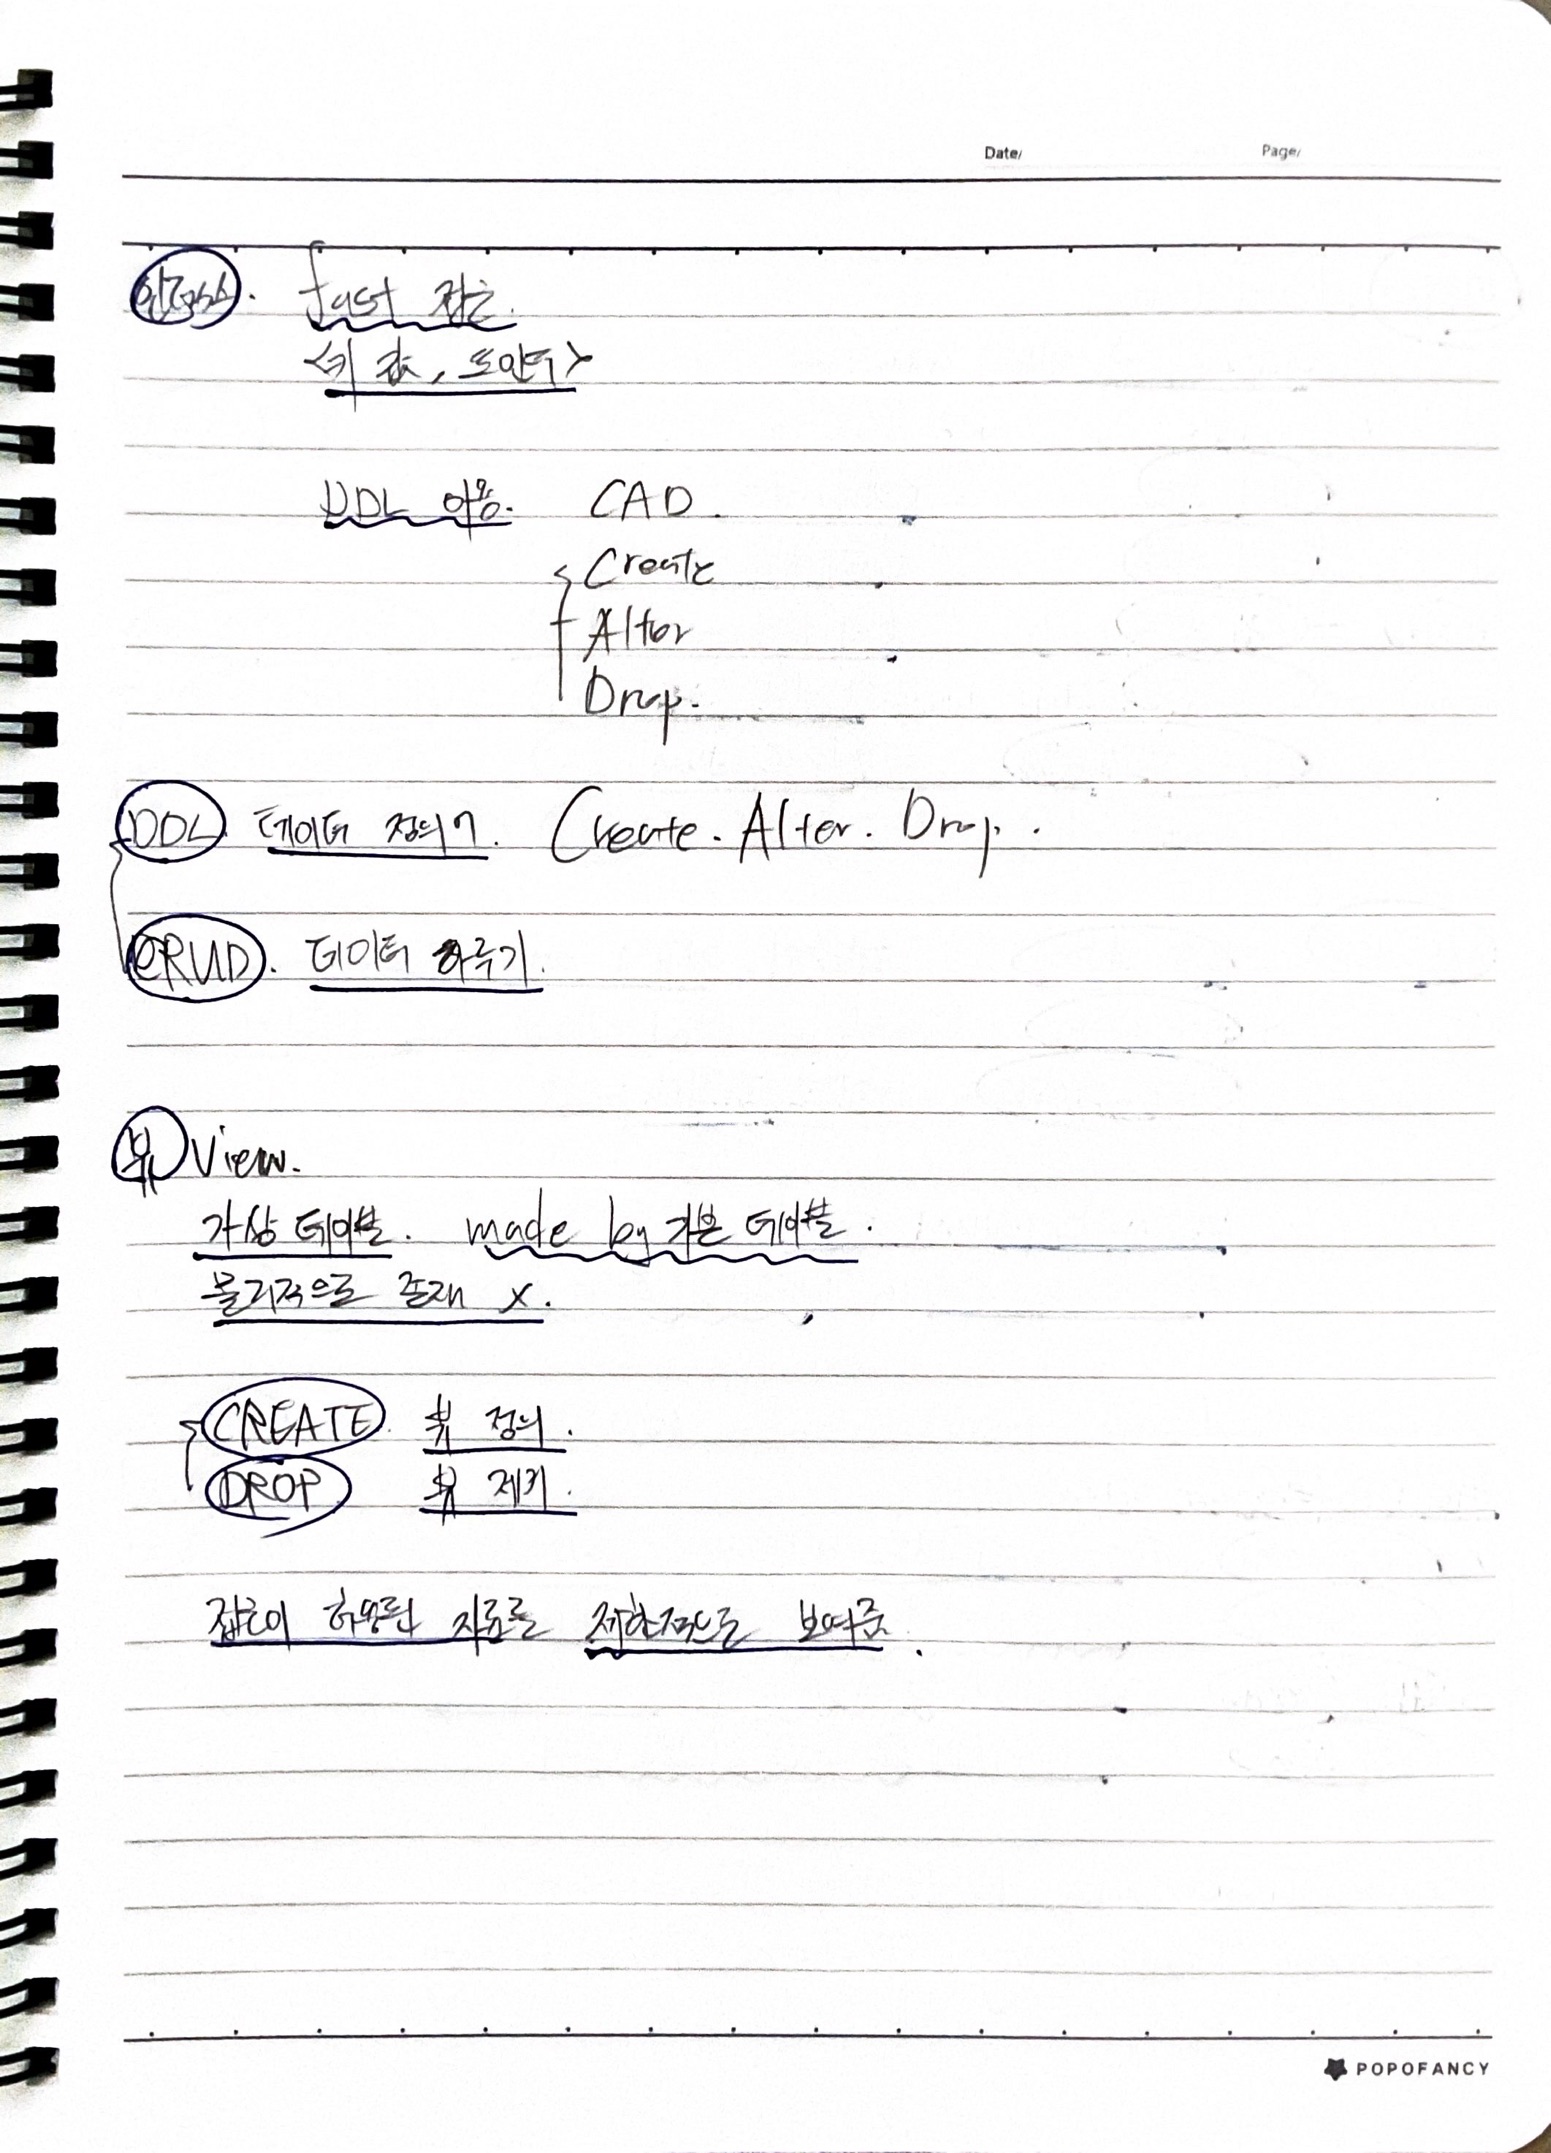 Date/ Page/
인덱스. fast 접근.
<키 값, 포인터>
DDL 이용. CAD.
Create
Alter
Drop.
DDL 데이터 정의어. Create. Alter. Drop.
CRUD. 데이터 다루기.
뷰 View.
가상 테이블. made by 기본 테이블.
물리적으로 존재 X.
CREATE 뷰 정의.
DROP 뷰 제거.
접근이 허용된 자료를 제한적으로 보여줌.
POPOFANCY